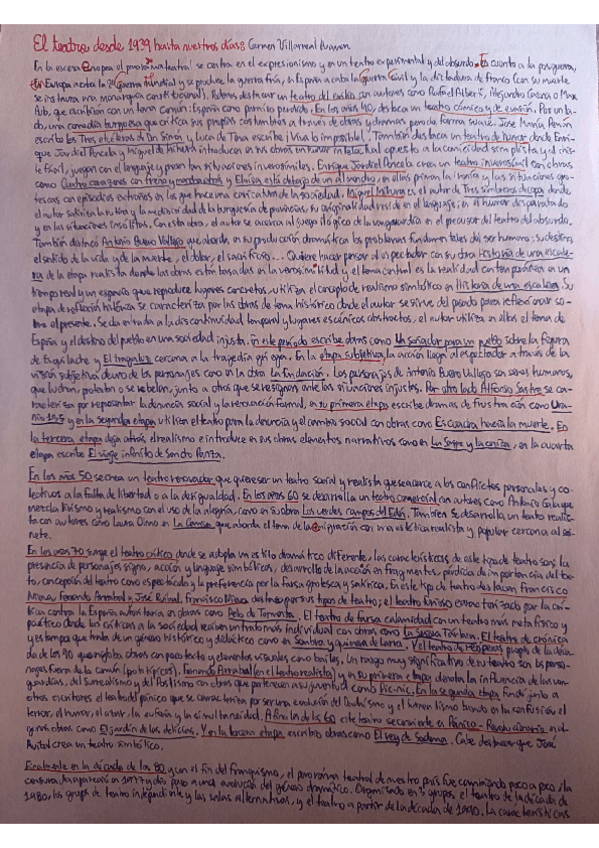 El teatro desde 1939 hasta nuestros días: Carmen Villarreal
En la escena europea el panorama teatral se centra en el expresionismo y en un teatro experimental y del absurdo. En cuanto a la posguerra,
en Europa acaba la 2ª Guerra mundial y se produce la guerra fría, en España acaba la Guerra Civil y la dictadura de Franco (con su muerte
se instaura una monarquía constitucional). Podemos destacar un teatro del exilio con autores como Rafael Alberti, Alejandro Casona o Max
Aub, que escribían con un tema común: España como paraíso perdido. En los años 40, destaca un teatro cómico y de evasión. Por un la-
do, una comedia burguesa que critica sus propias costumbres a través de obras y dramas pero de forma suave. José María Pemán
escribe Los Tres etcéteras de Don Simón y Luca de Tena escribe ¡Viva lo imposible!. También destaca un teatro de humor donde Enri-
que Jardiel Poncela y Miguel de Mihura introducen en sus obras un humor intelectual opuesto a la comicidad simplista y el chis-
te fácil, juegan con el lenguaje y presentan situaciones inverosímiles. Enrique Jardiel Poncela crea un teatro inverosímil con obras
como Cuatro corazones con freno y marcha atrás y Eloísa está debajo de un almendro, en ellas priman la ironía y las situaciones gro-
tescas con episodios extraños en los que hace una caricatura de la sociedad. Miguel Mihura es el autor de Tres sombreros de copa donde
el autor satiriza la rutina y la mediocridad de la burguesía de provincias, su originalidad reside en el lenguaje, en el humor disparatado
y en las situaciones insólitas. Con esta obra, el autor se acerca al juego ilógico de la vanguardia y es el precursor del teatro del absurdo.
También destaca Antonio Buero Vallejo que aborda en su producción dramática los problemas fundamentales del ser humano: su destino,
el sentido de la vida y de la muerte, el dolor, el sacrificio... Quiere hacer pensar al espectador con su obra Historia de una escale-
ra de la etapa realista donde las obras están basadas en la verosimilitud y el tema central es la realidad contemporánea en un
tiempo real y un espacio que reproduce lugares concretos, utiliza el concepto de realismo simbólico en Historia de una escalera. Su
etapa de reflexión histórica se caracteriza por las obras de tema histórico donde el autor se sirve del pasado para reflexionar so-
bre el presente. Se da entrada a la discontinuidad temporal y lugares escénicos abstractos, el autor utiliza en ellas el tema de
España y el destino del pueblo en una sociedad injusta. En este período escribe obras como Un soñador para un pueblo sobre la figura
de Esquilache y El tragaluz cercana a la tragedia griega. En la etapa subjetiva, la acción llega al espectador a través de la
visión subjetiva de uno de los personajes como en la obra La Fundación. Los personajes de Antonio Buero Vallejo son seres humanos,
que luchan, protestan o se rebelan, junto a otros que se resignan ante las situaciones injustas. Por otro lado Alfonso Sastre se ca-
racteriza por representar la denuncia social y la renovación formal, en su primera etapa escribe dramas de frustración como Ura-
nio 235 y en la segunda etapa utiliza el teatro para la denuncia y el cambio social con obras como Escuadra hacia la muerte. En
la tercera etapa deja atrás el realismo e introduce en sus obras elementos narrativos como en La Sangre y la ceniza, en la cuarta
etapa escribe El viaje infinito de Sancho Panza.
En los años 50 se crea un teatro renovador que quiere ser un teatro social y realista que se acerca a los conflictos personales y co-
lectivos a la falta de libertad o a la desigualdad. En los años 60 se desarrolla un teatro comercial con autores como Antonio Gala que
mezcla lirismo y realismo con el uso de la alegoría, como en su obra Los verdes campos del Edén. También se desarrolla un teatro realis-
ta con autores como Lauro Olmo en La Camisa que aborda el tema de la emigración con una estética realista y popular cercana al sai-
nete.
En los años 70 surge el teatro crítico donde se adopta un estilo dramático diferente, las características de este tipo de teatro son: la
presencia de personajes signo, acción y lenguaje simbólicos, desarrollo de la acción en fragmentos, pérdida de importancia del tex-
to, concepción del teatro como espectáculo y la preferencia por la farsa grotesca y satírica. En este tipo de teatro destacan Francisco
Nieva, Fernando Arrabal y José Ruibal. Francisco Nieva destaca por sus tipos de teatro; el teatro furioso caracterizado por la crí-
tica contra la España autoritaria en obras como Pelo de Tormenta. El teatro de farsa calamidad con un teatro más metafísico y
poético donde las críticas a la sociedad reciben un trato más individual con obras como La Señora Tártara. El teatro de crónica
y estampa que trata de un género histórico y didáctico como en Sombra y quimera de Larra. Y el teatro de reóperas propio de la déca-
da de los 90 que englobaba obras con poco texto y elementos visuales como bailes. Un rasgo muy significativo de su teatro son los perso-
najes fuera de lo común (prototípicos). Fernando Arrabal (en el teatro realista) y en su primera etapa denota la influencia de las van-
guardias, del surrealismo y del Postismo con obras que pertenecen a su juventud como Pic-nic. En la segunda etapa funda junto a
otros escritores el teatro del pánico que se caracteriza por ser una evolución del Dadaísmo y el surrealismo basado en la confusión, el
terror, el humor, el azar, la euforia y la simultaneidad. A final de los 60 este teatro se convierte en Pánico-Revolucionario en al-
gunas obras como El jardín de las delicias. Y en la tercera etapa escribe obras como El rey de Sodoma. Cabe destacar que José
Ruibal crea un teatro simbólico.
Finalmente en la década de los 80 y con el fin del franquismo, el panorama teatral de nuestro país fue cambiando poco a poco; la
censura desapareció en 1977 y dio paso a una evolución del género dramático. Organizado en 3 grupos: el teatro de la década de
1980, los grupos de teatro independiente y las salas alternativas, y el teatro a partir de la década de 1990. La características